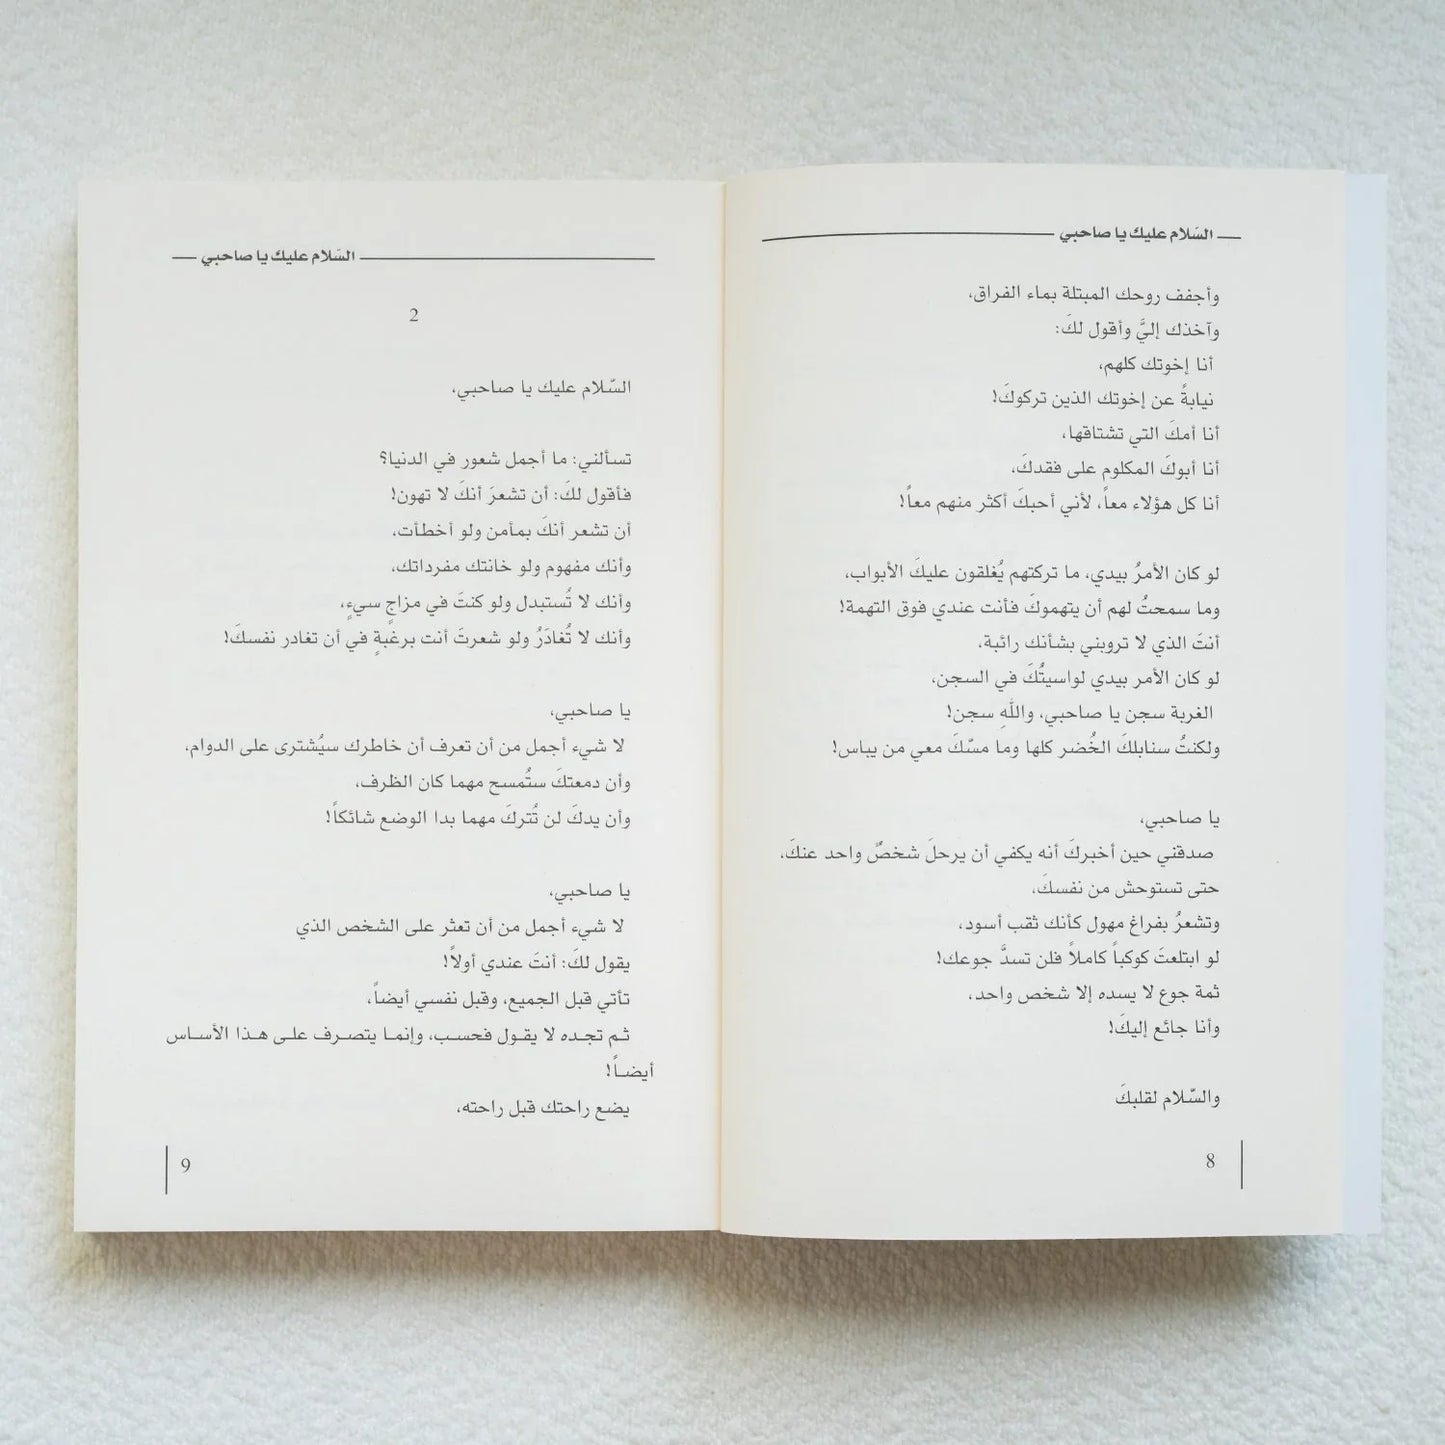 السَلام عليك يا صاحبي
وأجفف روحك المبتلة بماء الفراق،
وآخذك إليَّ وأقول لكَ:
أنا إخوتك كلهم،
نيابةً عن إخوتك الذين تركوكَ!
أنا أمكَ التي تشتاقها،
أنا أبوكَ المكلوم على فقدكَ،
أنا كل هؤلاء معاً، لأني أحبكَ أكثر منهم معاً!
لو كان الأمرُ بيدي، ما تركتهم يُغلقون عليكَ الأبواب،
وما سمحتُ لهم أن يتهموكَ فأنت عندي فوق التهمة!
أنتَ الذي لا تروبني بشأنك رائبة،
لو كان الأمر بيدي لواسيتُكَ في السجن،
الغربة سجن يا صاحبي، واللهِ سجن!
ولكنتُ سنابلكَ الخُضر كلها وما مسّكَ معي من يباس!
يا صاحبي،
صدقني حين أخبركَ أنه يكفي أن يرحلَ شخصٌ واحد عنكَ،
حتى تستوحش من نفسكَ،
وتشعرُ بفراغ مهول كأنك ثقب أسود،
لو ابتلعتَ كوكباً كاملاً فلن تسدَّ جوعك!
ثمة جوع لا يسده إلا شخص واحد،
وأنا جائع إليكَ!
والسّلام لقلبكَ
8
السَلام عليك يا صاحبي
2
السّلام عليك يا صاحبي،
تسألني: ما أجمل شعور في الدنيا؟
فأقول لكَ: أن تشعرَ أنكَ لا تهون!
أن تشعر أنكَ بمأمن ولو أخطأت،
وأنك مفهوم ولو خانتك مفرداتك،
وأنك لا تُستبدل ولو كنتَ في مزاجٍ سيءٍ،
وأنك لا تُغادَرُ ولو شعرتَ أنت برغبةٍ في أن تغادر نفسكَ!
يا صاحبي،
لا شيء أجمل من أن تعرف أن خاطرك سيُشترى على الدوام،
وأن دمعتكَ ستُمسح مهما كان الظرف،
وأن يدكَ لن تُتركَ مهما بدا الوضع شائكاً!
يا صاحبي،
لا شيء أجمل من أن تعثر على الشخص الذي
يقول لكَ: أنتَ عندي أولاً!
تأتي قبل الجميع، وقبل نفسي أيضاً،
ثم تجده لا يقول فحسب، وإنما يتصرف على هذا الأساس
أيضاً!
يضع راحتك قبل راحته،
9